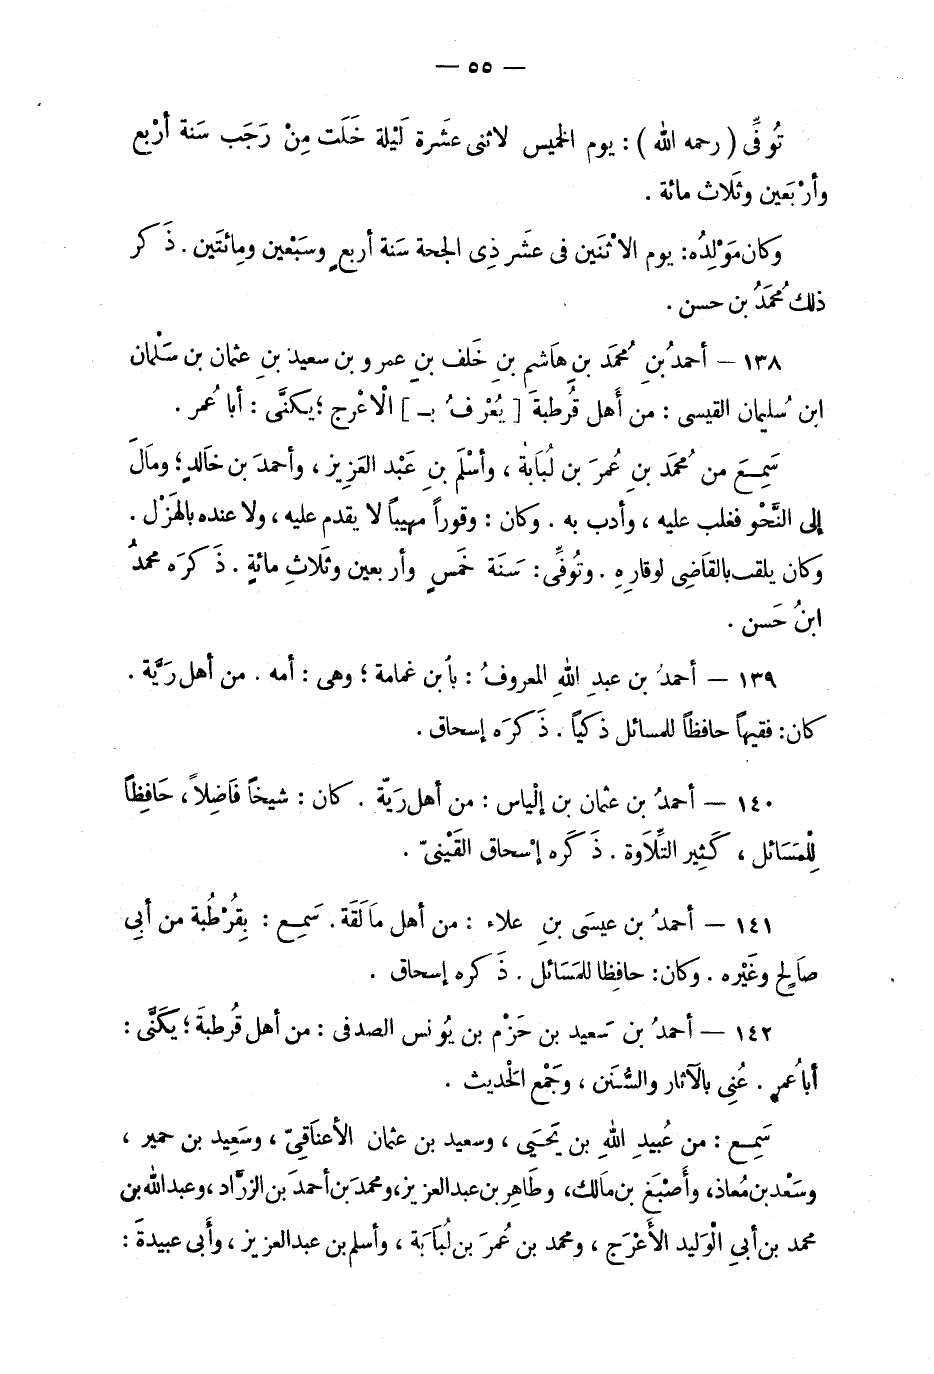 — ٥٥ —
تُوفِّى ( رحمه الله ) : يوم الخميس لاثنى عشَرة لَيْلة خَلَت مِنْ رَجَب سَنة أرْبع
وأرْبَعين وثَلَاث مائة .
وكان مَوْلِدُه: يوم الاثْنَين فى عشَر ذِى الجحة سَنة أربعٍ وسَبْعين ومِائتَين . ذَكر
ذلك مُحمَدُ بن حسن .
١٣٨ — أحمدُ بنِ مُحمَد بنِ هَاشمِ بنِ خَلف بنِ عمرو بن سعيد بنِ عثمان بن سَلْمان
ابن سُليمان القيسى : من أَهل قُرطبةَ [ يُعْرفُ بـ ] الْاعْرج ؛ يكنَّى : أبا عُمر .
سَمِعَ من مُحمَد بنِ عُمرَ بن لُبَابةُ ، وأسْلَم بنِ عَبْد العَزِيز ، وأحمدَ بن خَالدٍ ؛ ومَالَ
إلى النَّحْو فغلب عليه ، وأدب به . وكان : وقوراً مهيباً لا يقدم عليه ، ولا عنده بالهَزْل .
وكان يلقب بالقَاضِى لوقارِهِ . وتُوفِّى : سَنَة خَمسٍ وأربعين وثَلَاثِ مائةٍ . ذَكرَه محمدُ
ابنُ حَسن .
١٣٩ — أحمدُ بن عبدِ اللهِ المعروفُ : بأبن غمامة ؛ وهى : أمه . من أهل رَيَّة .
كان: فقيهاً حافظاً للمسائل ذكياً . ذَكرَه إسحاق .
١٤٠ — أحمدُ بن عثمان بن إلْياس : من أهل رَيّة . كان : شيخاً فَاضِلاً ، حَافِظاً
لِلْمَسَائل ، كَثِير التِّلَاوة . ذَكَره إسْحاق القَيْنىّ .
١٤١ — أحمدُ بن عيسَى بنِ علاء : من أهل مَالَقَة . سَمِع : بِقُرْطُبة من أبِى
صَالِح وغَيْره . وكان: حافِظا للمَسَائل . ذَكره إسحاق .
١٤٢ — أحمدُ بن سَعيد بن حَزْم بن يُونس الصدفى : من أهل قُرطبةَ ؛ يكَنَّى :
أبا عُمرٍ . عُنِى بالآثار والسُّنَن ، وجَمْع الحَديث .
سَمِع : من عُبيدِ اللهِ بن يَحيَى ، وسعيد بن عثمان الأعناقِىّ ، وسَعِيد بن حمير ،
وسَعْد بن مُعاذ، وأَصْبَغ بن مَالك، وطَاهِر بن عبد العزيز، ومحمدَ بن أحمدَ بن الزرَّاد ، وعبد الله بن
محمد بن أبى الْوَليد الأَعْرَج ، ومحمد بن عُمرَ بن لُبَابَة ، وأسلم بن عبد العزيز ، وأَبى عبيدةَ :